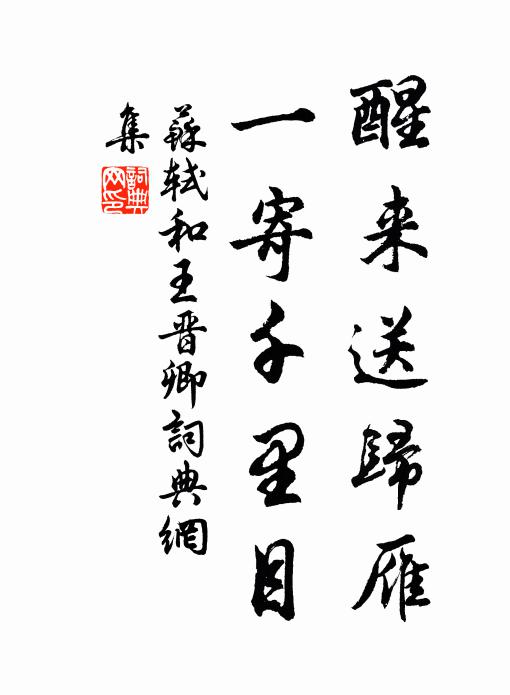 醒来送歸雁
一寄千里目
蘇軾和王晋卿詞典網
集
詞典
网印